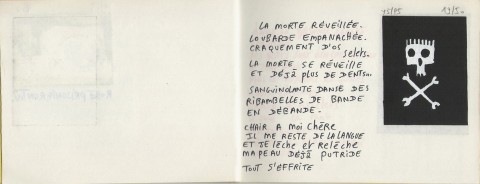 +5/05
19/50
LA MORTE RÉVEILLÉE.
LOUBARDE EMPANACHÉE.
CRAQUEMENT D'OS
selets.
LA MORTE SE RÉVEILLE
ET DÉJÀ PLUS DE DENTS...
SANGUINOLANTE DANSE DES
RIBAMBELLES DE BANDE
EN DÉBANDE.
CHAIR A MOI CHÈRE
IL ME RESTE DE LA LANGUE
ET JE LÈCHE ET RELÈCHE
MA PEAU DÉJÀ PUTRIDE
TOUT S'EFFRITE